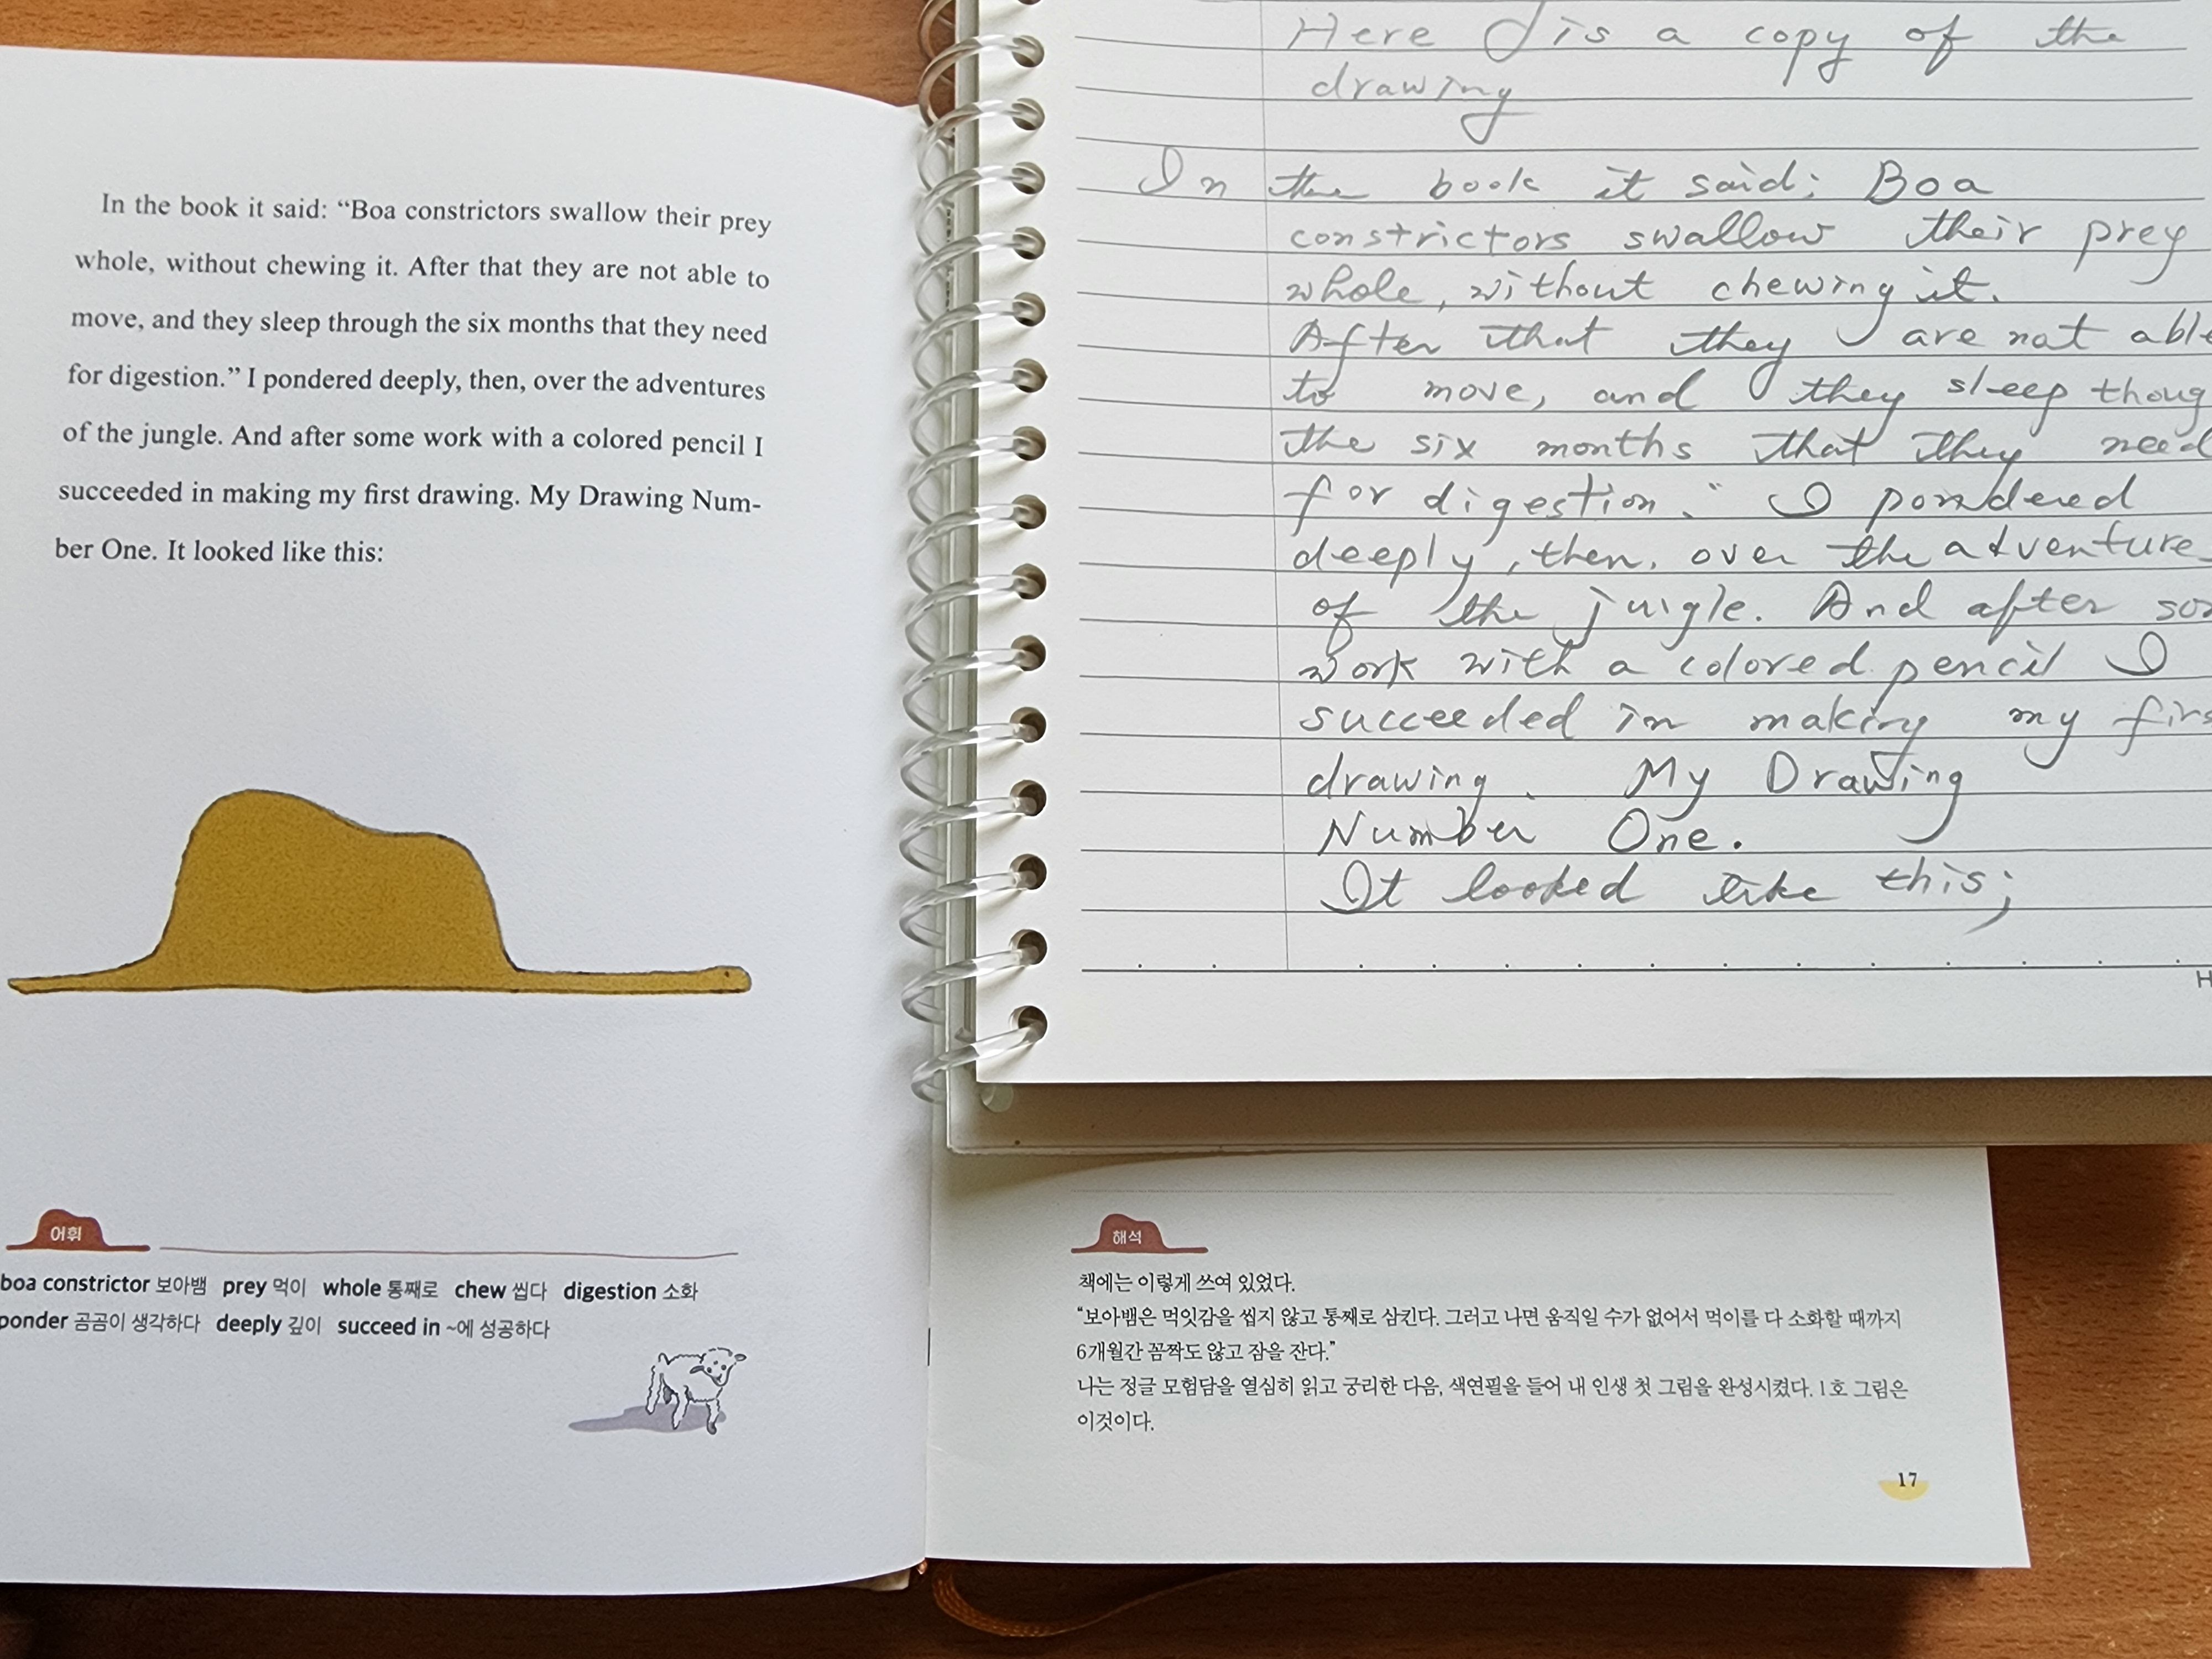 In the book it said: “Boa constrictors swallow their prey
whole, without chewing it. After that they are not able to
move, and they sleep through the six months that they need
for digestion.” I pondered deeply, then, over the adventures
of the jungle. And after some work with a colored pencil I
succeeded in making my first drawing. My Drawing Num-
ber One. It looked like this:
어휘
boa constrictor 보아뱀 prey 먹이 whole 통째로 chew 씹다 digestion 소화
ponder 곰곰이 생각하다 deeply 깊이 succeed in ~에 성공하다
Here is a copy of the
drawing
In the book it said: Boa
constrictors swallow their prey
whole, without chewing it.
After that they are not able
to move, and they sleep thoug
the six months that they need
for digestion." I pondered
deeply, then, over the adventure
of the jungle. And after so
work with a colored pencil I
succeeded in making my firs
drawing. My Drawing
Number One.
It looked like this;
H
해석
책에는 이렇게 쓰여 있었다.
“보아뱀은 먹잇감을 씹지 않고 통째로 삼킨다. 그러고 나면 움직일 수가 없어서 먹이를 다 소화할 때까지
6개월간 꼼짝도 않고 잠을 잔다.”
나는 정글 모험담을 열심히 읽고 궁리한 다음, 색연필을 들어 내 인생 첫 그림을 완성시켰다. 1호 그림은
이것이다.
17